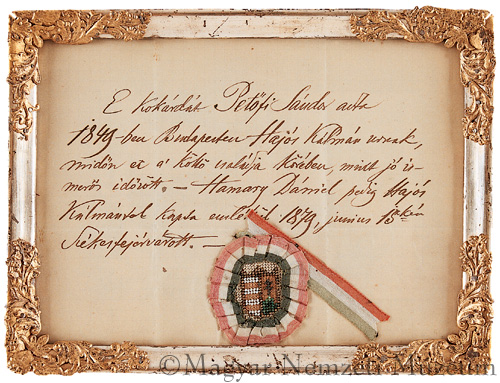 E kokárdát Petőfi Sándor adta
1849-ben Budapesten Hajós Kálmán urnak,
midőn ez a' költő családja körében, mint jó is-
merős időzött. – Hamary Dániel pedig Hajós
Kálmántol kapta emlékül 1879, junius 15-kén
Székesfejérvárott. –
©Magyar Nemzeti Múzeum